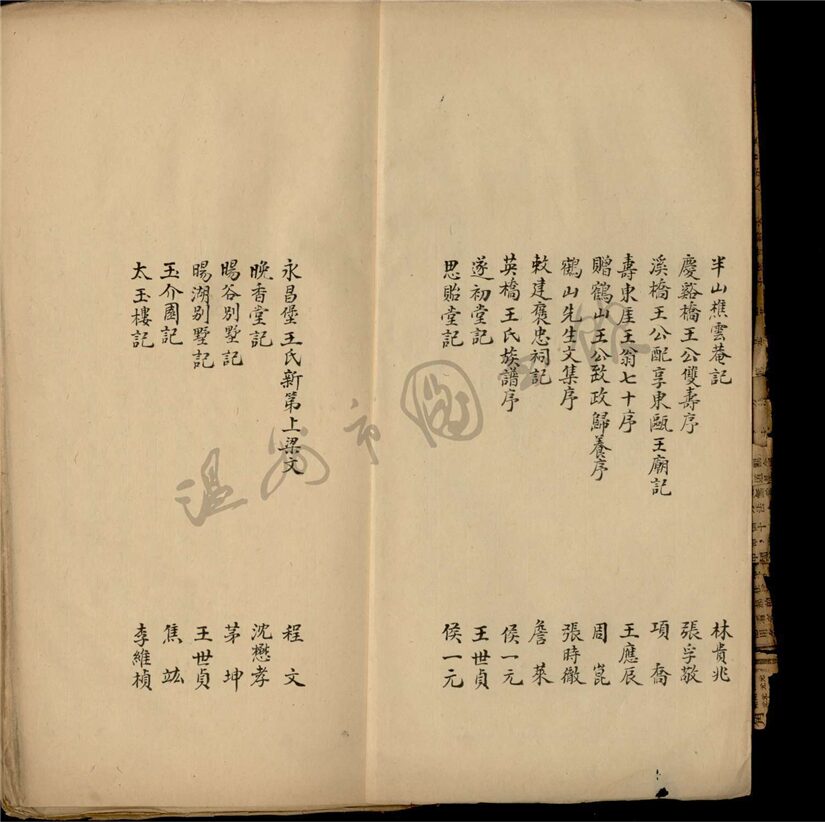 半山樵雲菴記 林貴兆
慶谿橋王公雙壽序 張孚敬
溪橋王公配享東甌王廟記 項喬
壽東厓王翁七十序 王應辰
贈鶴山王公致政歸養序 周崑
鶴山先生文集序 張時徹
敕建褒忠祠記 詹萊
英橋王氏族譜序 侯一元
遂初堂記 王世貞
思貽堂記 侯一元
永昌堡王氏新第上梁文 程文
晚香堂記 沈懋孝
暘谷別墅記 茅坤
暘湖別墅記 王世貞
玉介園記 焦竑
太玉樓記 李維楨
温州市圖書館